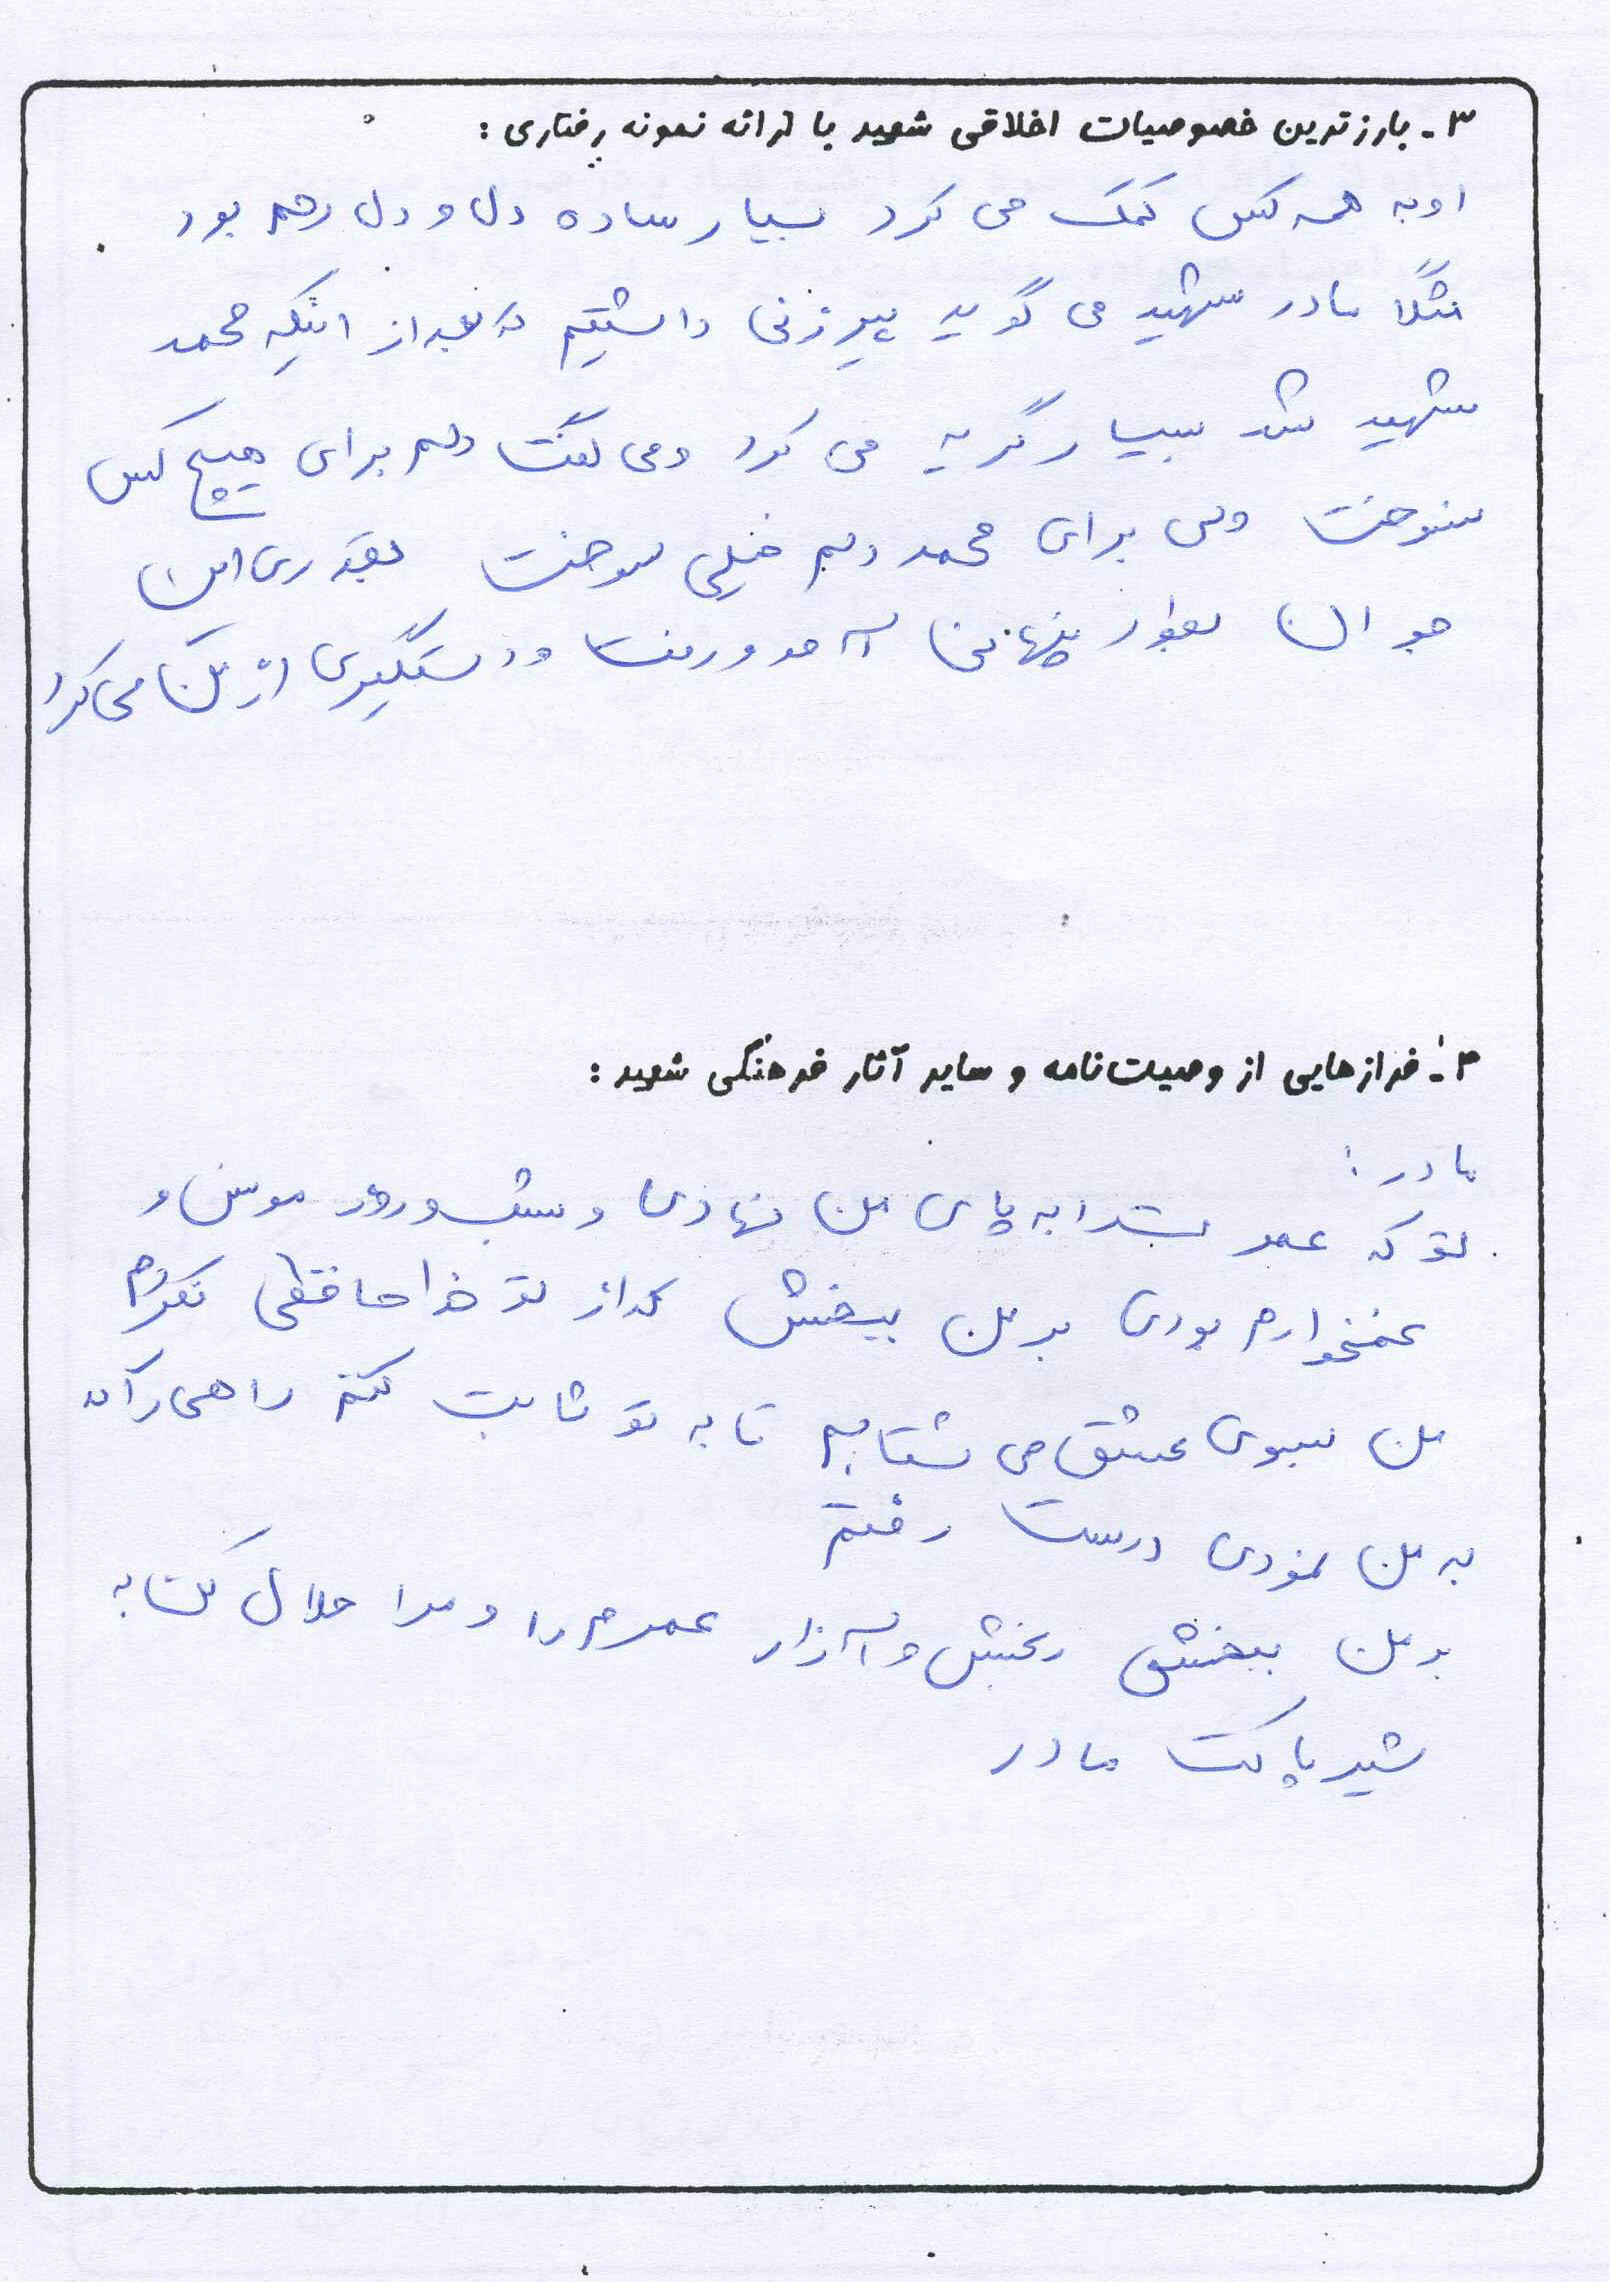 ۳- بارزترین خصوصیات اخلاقی شهید با ارائه نمونه رفتاری:
او به همه کس کمک می کرد بسیار ساده دل و دل رحم بود
مثلاً مادر شهید می گوید پیرزنی داشتیم که بعد از اینکه محمد
شهید شد بسیار گریه می کرد و می گفت دلم برای هیچ کس
نسوخت ولی برای محمد دلم خیلی سوخت بقدری این
جوان بطور پنهانی آمد و رفت و دستگیری از من می کرد
۴- فرازهایی از وصیت‌نامه و سایر آثار فرهنگی شهید:
مادر:
تو که عمرت را به پای من نهادی و شب و روز مونس و
غمخوارم بودی بر من ببخش که از تو خداحافظی نکردم
من بسوی عشق می شتابم تا به تو ثابت کنم راهی را که
به من نمودی درست رفتم
بر من ببخش رنجش و آزار عمرم را و مرا حلال کن به
شیر پاکت مادر